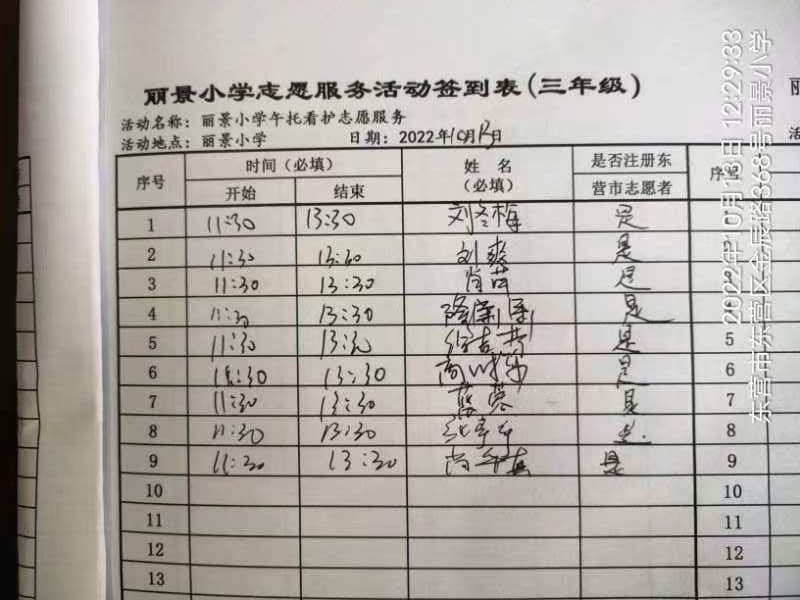 丽景小学志愿服务活动签到表(三年级)
活动名称：丽景小学午托看护志愿服务
活动地点：丽景小学 日期：2022年10月13日
序号 时间（必填） 姓名（必填） 是否注册东营市志愿者 序号
开始 结束
1 11:30 13:30 刘冬梅 是
2 11:30 13:30 刘爽 是
3 11:30 13:30 肖苗 是
4 11:30 13:30 是
5 11:30 13:30 是 5
6 11:30 13:30 是 6
7 11:30 13:30 是 7
8 11:30 13:30 是 8
9 11:30 13:30 是 9
10 10
11 11
12 12
13 13
2022年10月13日 12:29:33
东营市东营区金辰路368号丽景小学